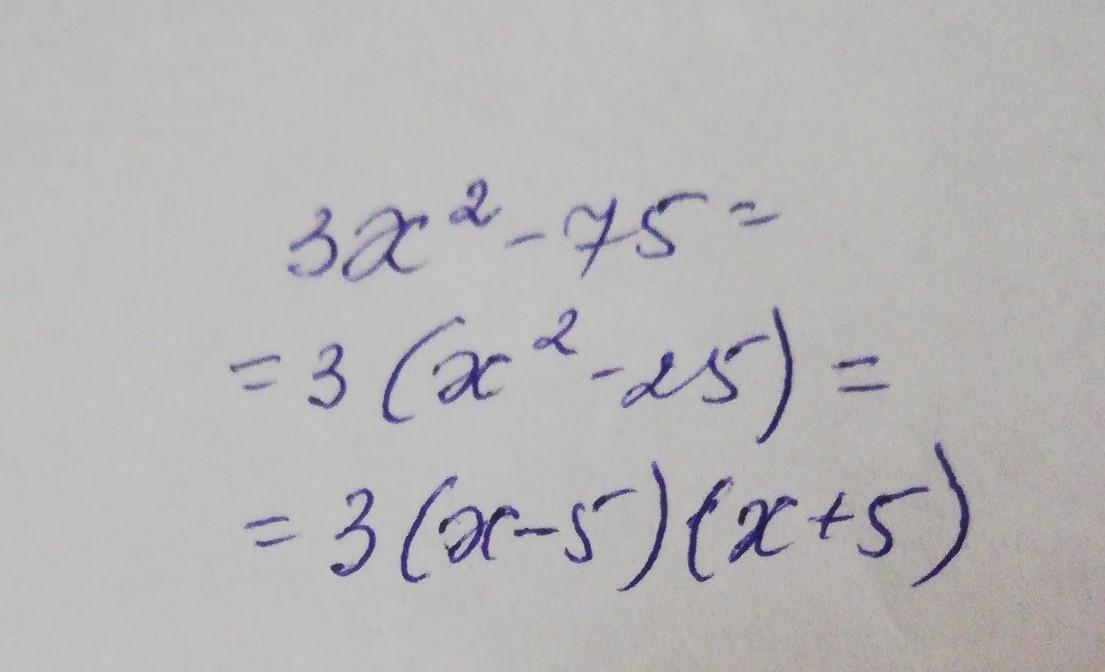 3x²-75=
=3(x²-25)=
=3(x-5)(x+5)